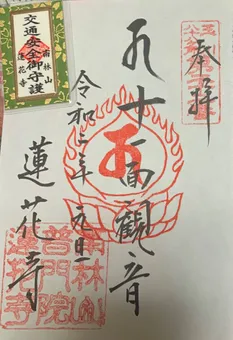 奉拝
十一面観音
令和二年 元旦
蓮花寺
交通安全御守護
南林山
蓮花寺
南林山
普門院
蓮花寺